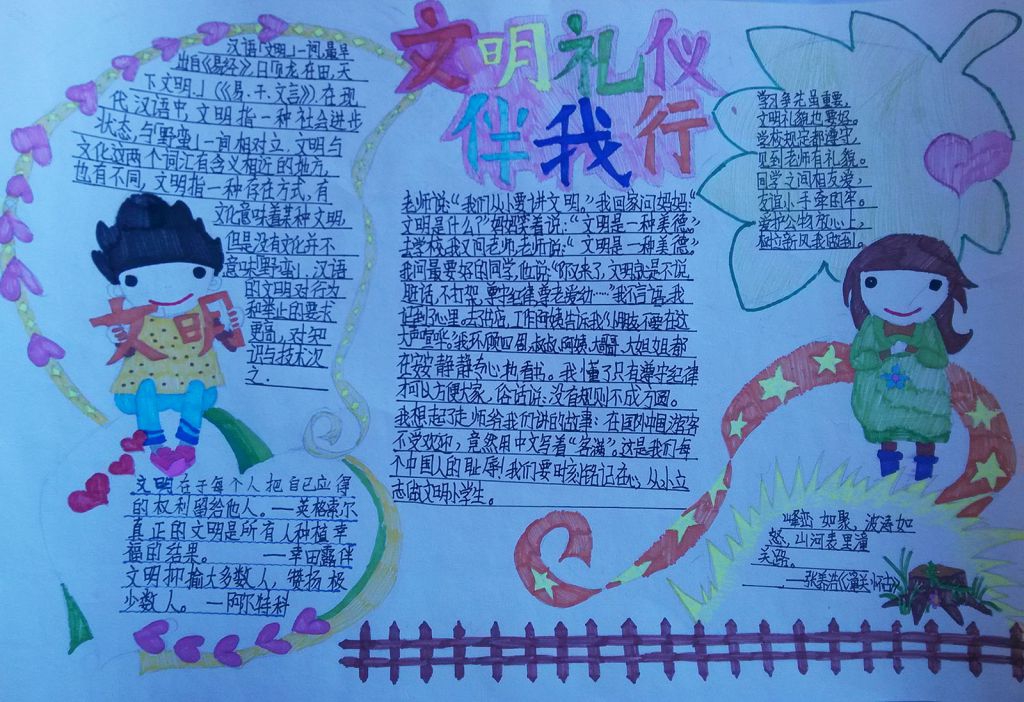 文明礼仪
伴我行
汉语「文明」一词,最早
出自《易经》,曰「见龙在田,天
下文明。」(《易·干·文言》).在现
代汉语中,文明指一种社会进步
状态,与「野蛮」一词相对立.文明与
文化这两个词汇有含义相近的地方,
也有不同,文明指一种存在方式,有
文化意味着某种文明,
但是没有文化并不
意味「野蛮」,汉语
的文明对行为
和举止的要求
更高,对知
识与技术次
之.
文明
文明在于每个人把自己应得
的权利留给他人。—英格索尔
真正的文明是所有人种植幸
福的结果。—幸田露伴
文明抑揄大多数人,赞扬极
少数人。—阿尔特科
老师说:“我们从小要讲文明。”我回家问妈妈:“
文明是什么?”妈妈笑着说:“文明是一种美德。”
去学校,我又问老师,老师说:“文明是一种美德。”
我问最要好的同学,他说:“你又来了,文明就是不说
脏话,不打架,遵守纪律,尊老爱幼……”我不言语,我
记到了心里。去书店,工作阿姨告诉我们:“小朋友不要在这
大声喧哗。”我环顾四周,叔叔、阿姨、大哥哥、大姐姐都
在安安静静专心地看书。我懂了只有遵守纪律
才可以方便大家,俗话说:没有规则不成方圆。
我想起了老师给我们讲的故事:在国外中国游客
不受欢迎,竟然用中文写着“客满”。这是我们每
个中国人的耻辱!我们要时刻铭记在心,从小立
志做文明小学生。
学习争先虽重要,
文明礼貌也要好。
学校规定都遵守,
见到老师有礼貌。
同学之间相友爱,
友谊小手牵的牢。
爱护公物放心上,
树立新风我做到。
峰峦如聚,波涛如
怒,山河表里潼
关路。
—张养浩《潼关怀古》